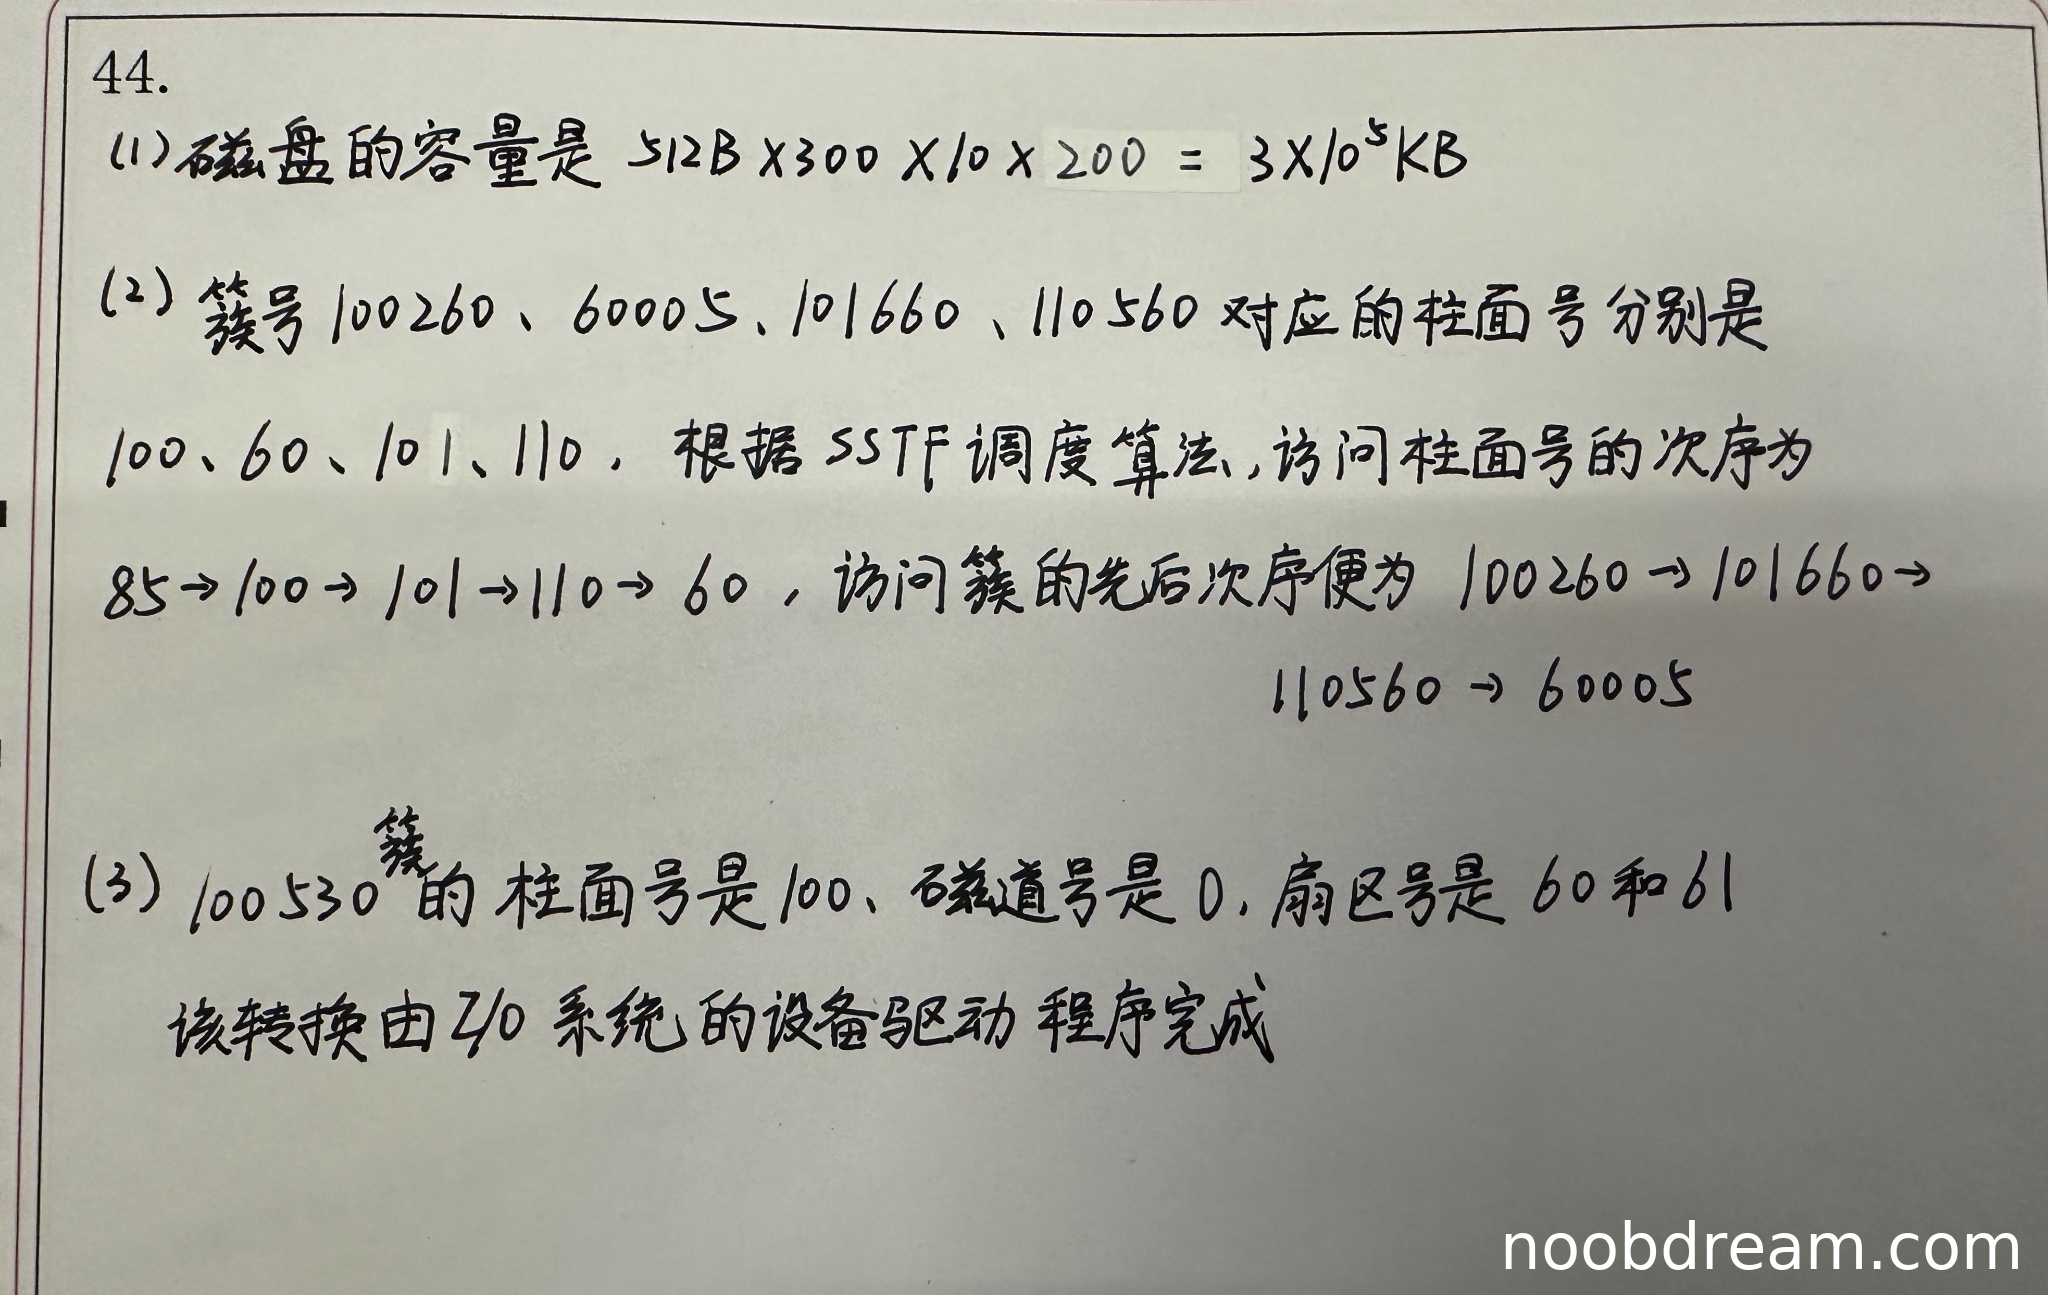 44.
(1) 磁盘的容量是 512B×300×10×200 = 3×10⁵KB
(2) 簇号100260、60005、101660、110560 对应的柱面号分别是
100、60、101、110，根据SSTF调度算法，访问柱面号的次序为
85→100→101→110→60，访问簇的先后次序便为 100260→101660→
110560→60005
(3) 100530簇的柱面号是100、磁道号是0，扇区号是60和61
该转换由I/O系统的设备驱动程序完成
noobdream.com